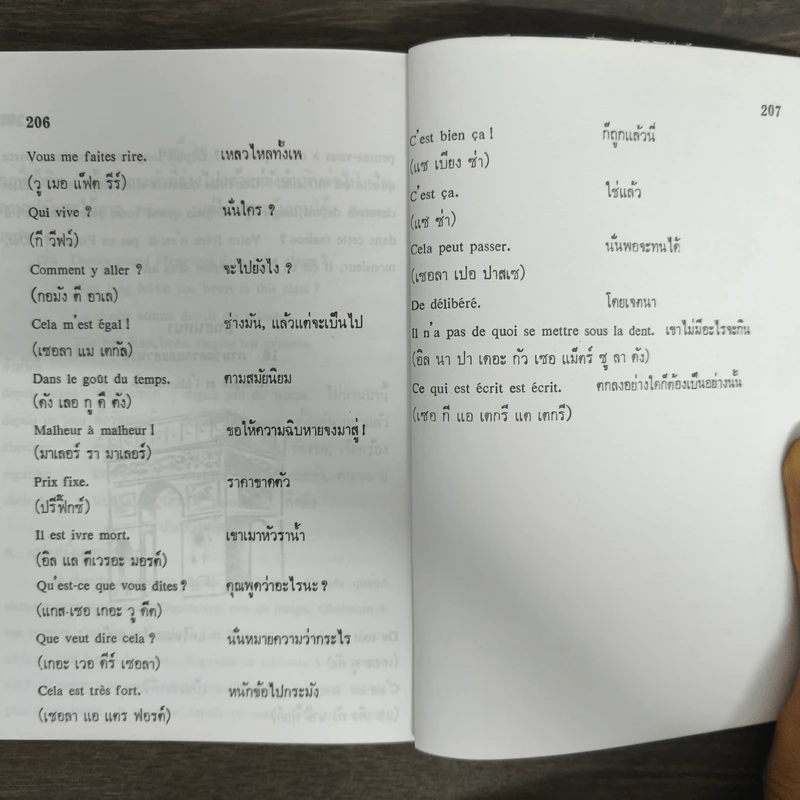 206
Vous me faites rire. เหลวไหลทั้งเพ
(วู เมอ แฟ็ต รีร์)
Qui vive ? นั่นใคร ?
(กี วีฟว์)
Comment y aller ? จะไปยังไง ?
(กอมัง ตี อาเล)
Cela m'est égal ! ช่างมัน, แล้วแต่จะเป็นไป
(เซอลา แม เตกัล)
Dans le goût du temps. ตามสมัยนิยม
(ดัง เลอ กู ดื ตัง)
Malheur à malheur ! ขอให้ความฉิบหายจงมาสู่ !
(มาเลอร์ รา มาเลอร์)
Prix fixe. ราคาขาดตัว
(ปรีฟิ๊กซ์)
Il est ivre mort. เขาเมาหัวราน้ำ
(อิล แล ตีเวรอะ มอรต์)
Qu'est-ce que vous dites ? คุณพูดว่าอะไรนะ ?
(แกส-เซอ เกอะ วู ดีต)
Que veut dire cela ? นั่นหมายความว่ากระไร
(เกอะ เวอ ดีร์ เซอลา)
Cela est très fort. หนักข้อไปกระมัง
(เซอลา แอ แตร ฟอรต์)
207
C'est bien ça ! ก็ถูกแล้วนี่
(แซ เบียง ซ่า)
C'est ça. ใช่แล้ว
(แซ ซ่า)
Cela peut passer. นั่นพอจะทนได้
(เซอลา เปอ ปาสเซ)
De délibéré. โดยเจตนา
Il n'a pas de quoi se mettre sous la dent. เขาไม่มีอะไรจะกิน
(อิล นา ปา เดอะ กัว เซอ แม็ตร์ ซู ลา ดัง)
Ce qui est écrit est écrit. ตกลงอย่างใดก็ต้องเป็นอย่างนั้น
(เซอ กี แอ เตกรี แต เตกรี)